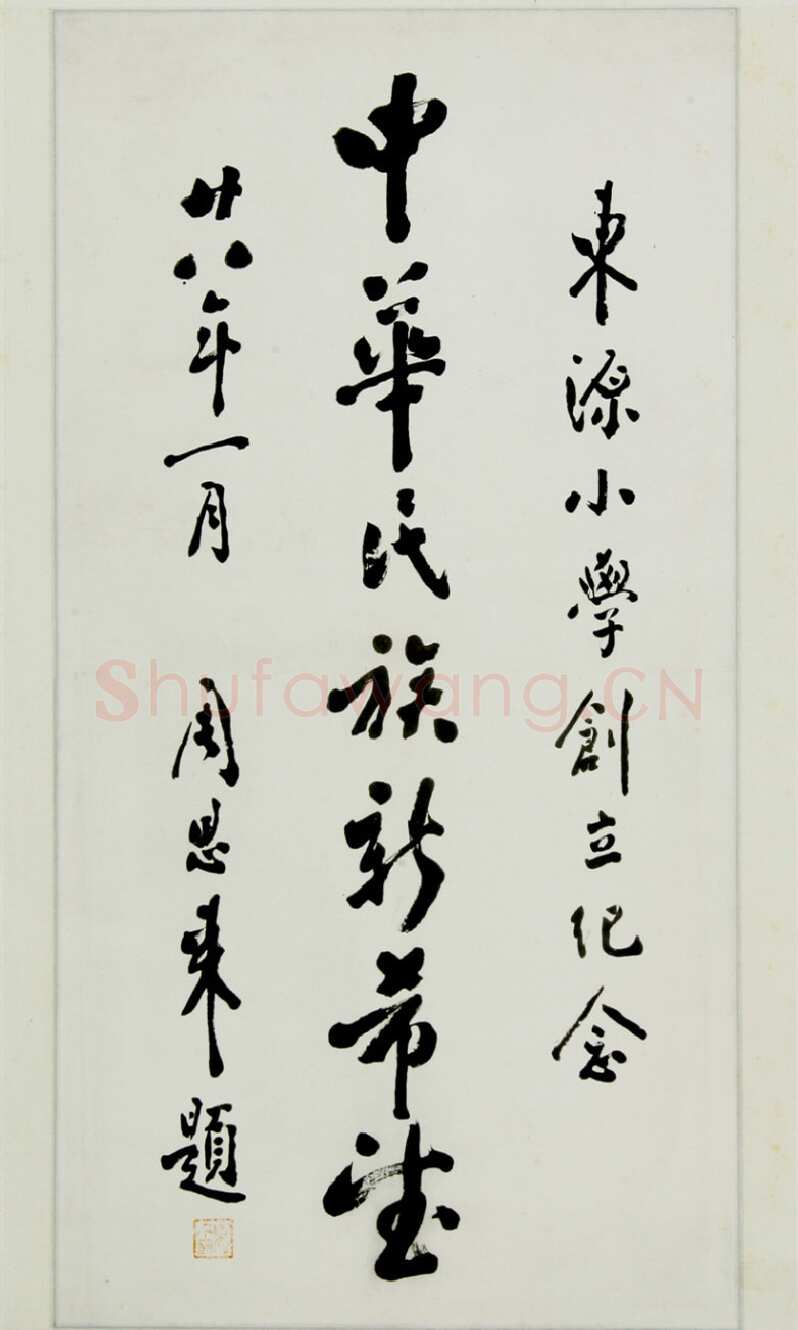 東源小學創立纪念
中華民族新希望
廿八年一月 周恩来題
Shufawang.CN